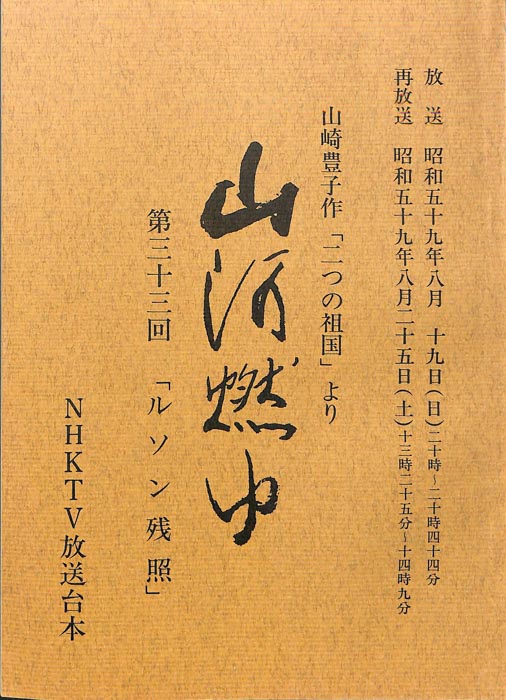 放　送　昭和五十九年八月　十九日(日)二十時～二十時四十四分
再放送　昭和五十九年八月二十五日(土)十三時二十五分～十四時九分
山崎豊子作「二つの祖国」より
山河燃ゆ
第三十三回　「ルソン残照」
NHKTV放送台本